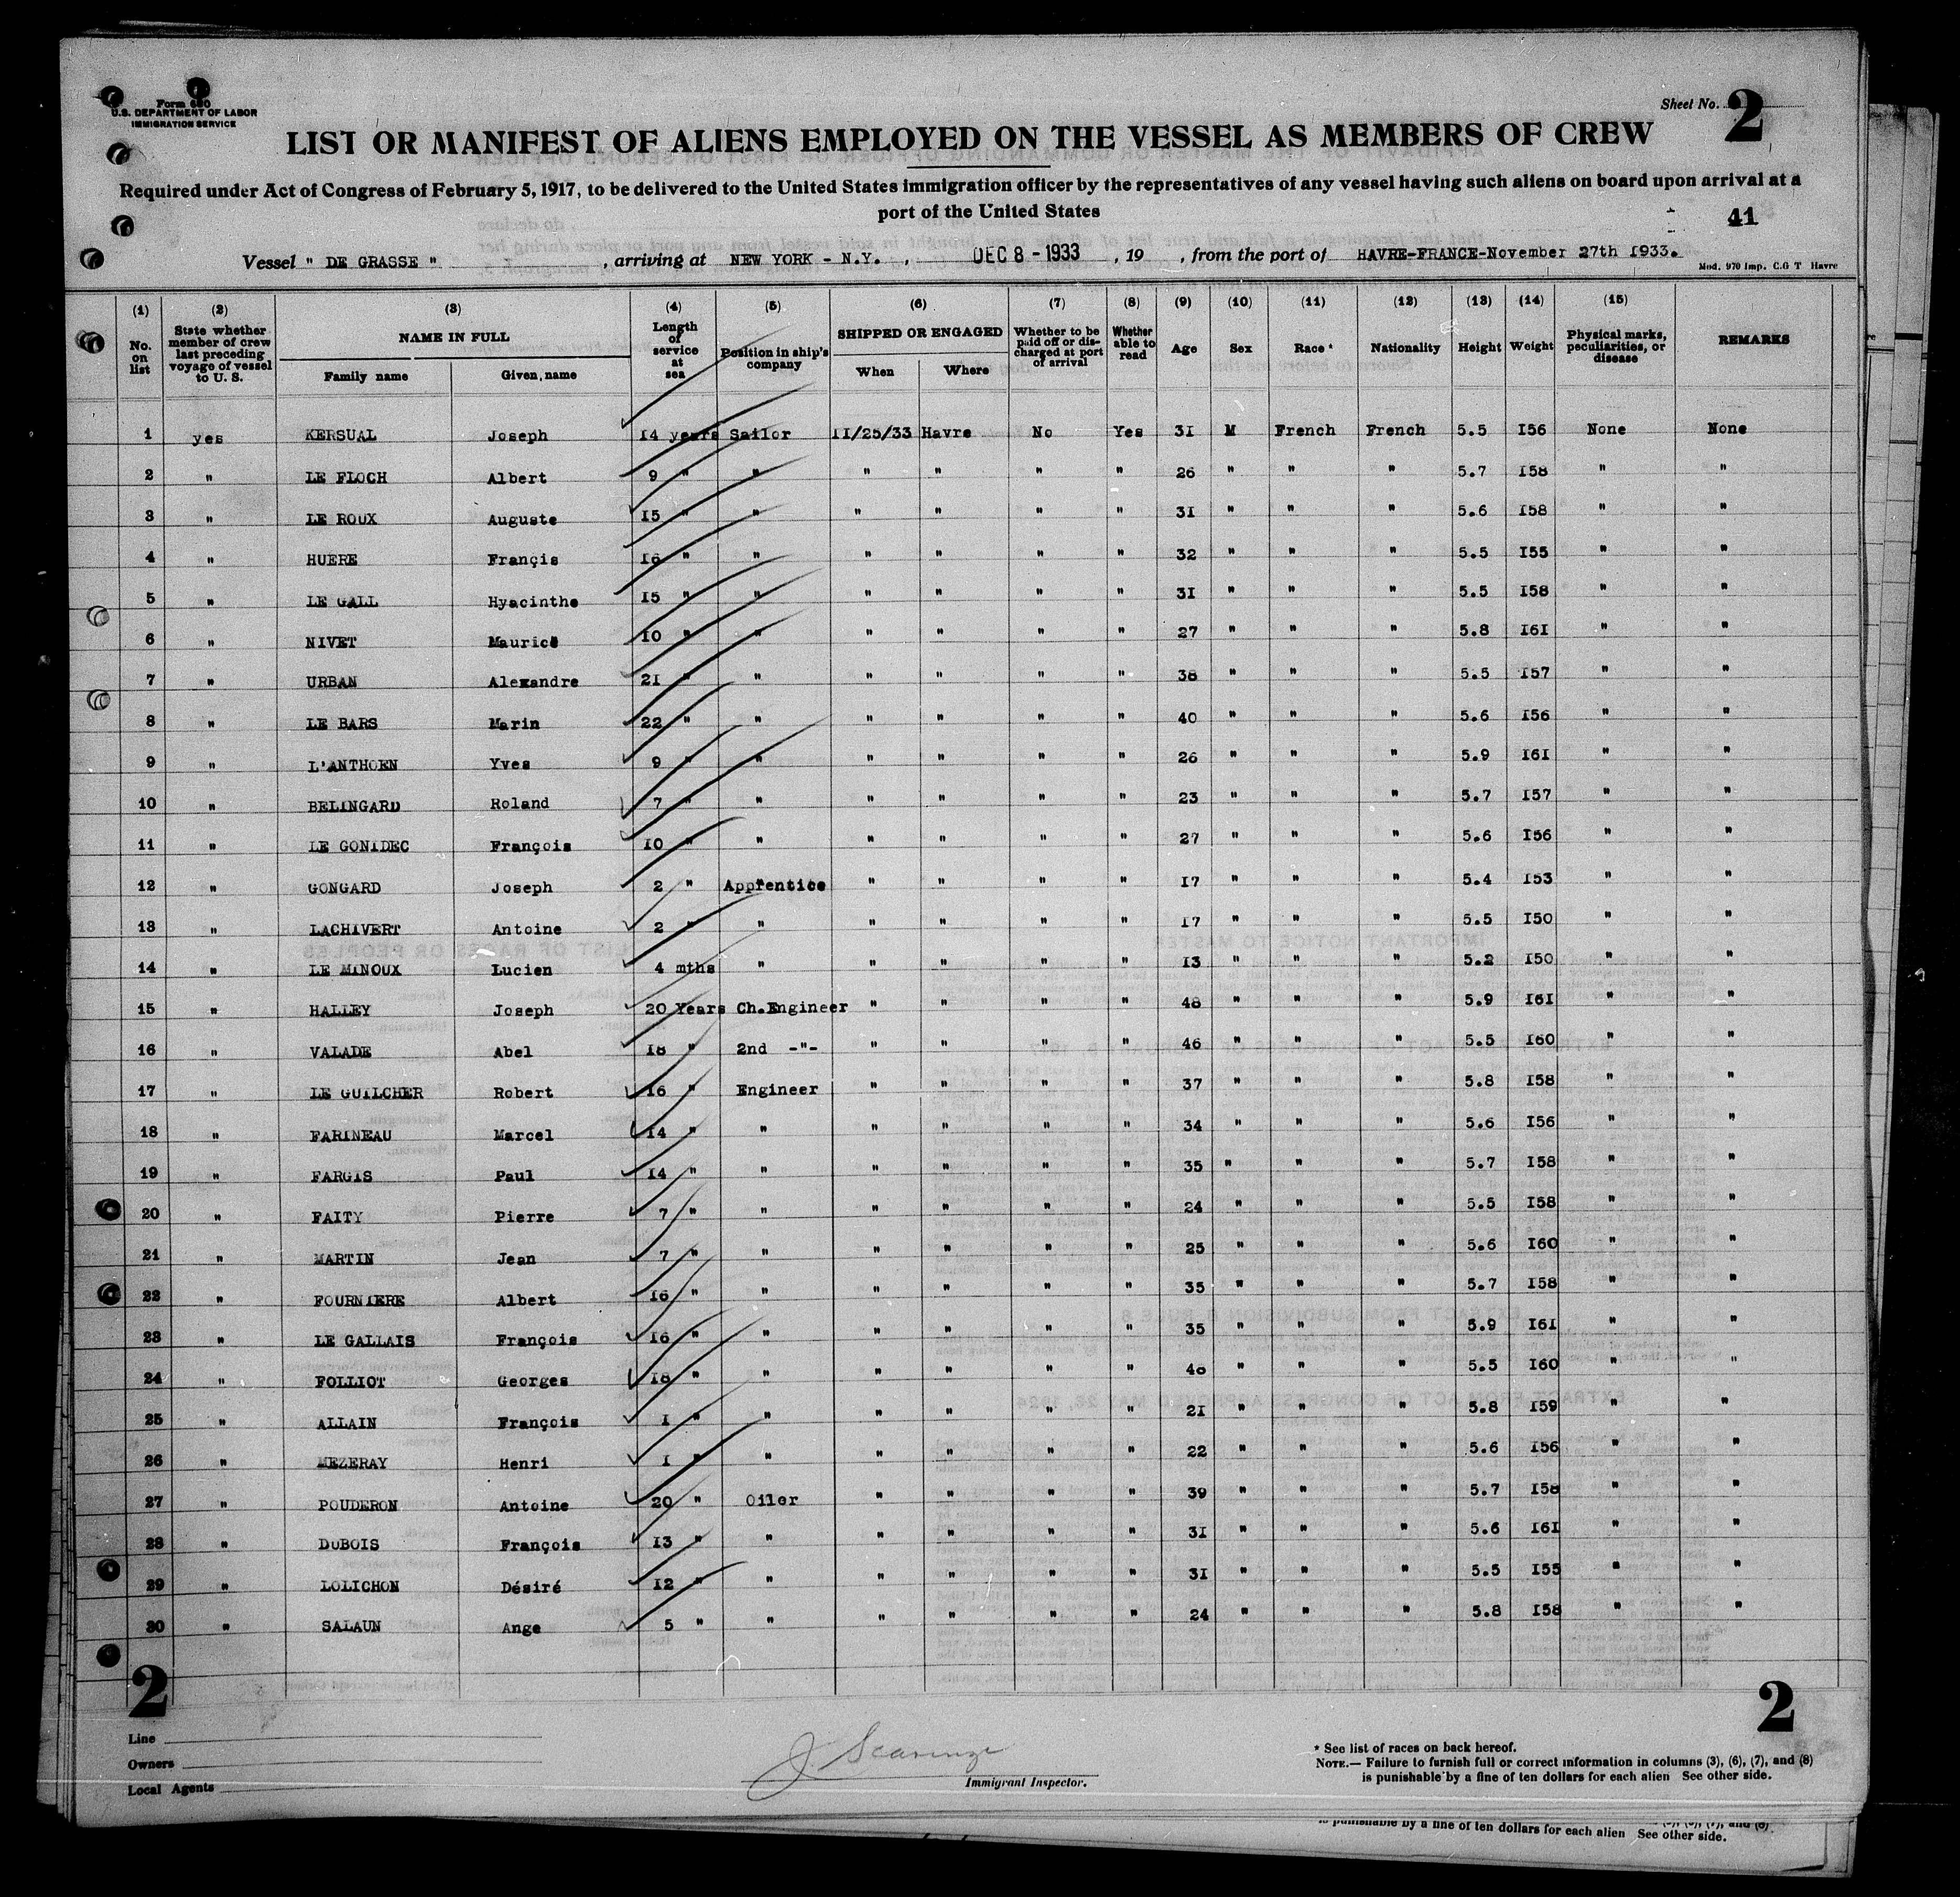 Form 680
U.S. DEPARTMENT OF LABOR
IMMIGRATION SERVICE
Sheet No. 2
LIST OR MANIFEST OF ALIENS EMPLOYED ON THE VESSEL AS MEMBERS OF CREW
Required under Act of Congress of February 5, 1917, to be delivered to the United States immigration officer by the representatives of any vessel having such aliens on board upon arrival at a
port of the United States
41
Vessel " DE GRASSE " , arriving at NEW YORK - N.Y. , DEC 8 - 1933 , 19 , from the port of HAVRE-FRANCE-November 27th I933.
Mod. 970 Imp. C.G T Havre
(1) (2) (3) (4) (5) (6) (7) (8) (9) (10) (11) (12) (13) (14) (15)
No. on list State whether member of crew last preceding voyage of vessel to U. S. NAME IN FULL Family name Given name Length of service at sea Position in ship's company SHIPPED OR ENGAGED When Where Whether to be paid off or discharged at port of arrival Whether able to read Age Sex Race * Nationality Height Weight Physical marks, peculiarities, or disease REMARKS
1 yes KERSUAL Joseph I4 years Sailor II/25/33 Havre No Yes 3I M French French 5.5 I56 None None
2 " LE FLOCH Albert 9 " " " " " " 26 " " " 5.7 I58 " "
3 " LE ROUX Auguste I5 " " " " " " 3I " " " 5.6 I58 " "
4 " HUERE Françis I6 " " " " " " 32 " " " 5.5 I55 " "
5 " LE GALL Hyacinthe I5 " " " " " " 3I " " " 5.5 I58 " "
6 " NIVET Maurice I0 " " " " " " 27 " " " 5.8 I6I " "
7 " URBAN Alexandre 2I " " " " " " 38 " " " 5.5 I57 " "
8 " LE BARS Marin 22 " " " " " " 40 " " " 5.6 I56 " "
9 " L'ANTHOEN Yves 9 " " " " " " 26 " " " 5.9 I6I " "
10 " BELINGARD Roland 7 " " " " " " 23 " " " 5.7 I57 " "
11 " LE GONIDEC François I0 " " " " " " 27 " " " 5.6 I56 " "
12 " GONGARD Joseph 2 " Apprentice " " " " I7 " " " 5.4 I53 " "
13 " LACHIVERT Antoine 2 " " " " " " I7 " " " 5.5 I50 " "
14 " LE MINOUX Lucien 4 mths " " " " " I3 " " " 5.2 I50 " "
15 " HALLEY Joseph 20 Years Ch.Engineer " " " " 48 " " " 5.9 I6I " "
16 " VALADE Abel I8 " 2nd -"- " " " " 46 " " " 5.5 I60 " "
17 " LE GUILCHER Robert I6 " Engineer " " " " 37 " " " 5.8 I58 " "
18 " FARINEAU Marcel I4 " " " " " " 34 " " " 5.6 I56 " "
19 " FARGIS Paul I4 " " " " " " 35 " " " 5.7 I58 " "
20 " FAITY Pierre 7 " " " " " " 24 " " " 5.5 I58 " "
21 " MARTIN Jean 7 " " " " " " 25 " " " 5.6 I60 " "
22 " FOURNIERE Albert I6 " " " " " " 35 " " " 5.7 I58 " "
23 " LE GALLAIS François I6 " " " " " " 35 " " " 5.9 I6I " "
24 " FOLLIOT Georges I8 " " " " " " " " " 5.5 I60 " "
25 " ALLAIN François I " " " " " " 2I " " " 5.8 I59 " "
26 " MEZERAY Henri I " " " " " " 22 " " " 5.6 I56 " "
27 " POUDERON Antoine 20 " Oiler " " " " 39 " " " 5.7 I58 " "
28 " DUBOIS François I3 " " " " " " 3I " " " 5.6 I6I " "
29 " LOLICHON Désiré I2 " " " " " " 3I " " " 5.5 I55 " "
30 " SALAUN Ange 5 " " " " " " 24 " " " 5.8 I58 " "
2
2
Line
Owners
Local Agents
Immigrant Inspector.
* See list of races on back hereof.
NOTE.— Failure to furnish full or correct information in columns (3), (6), (7), and (8)
is punishable by a fine of ten dollars for each alien See other side.
is punishable by a fine of ten dollars for each alien See other side.